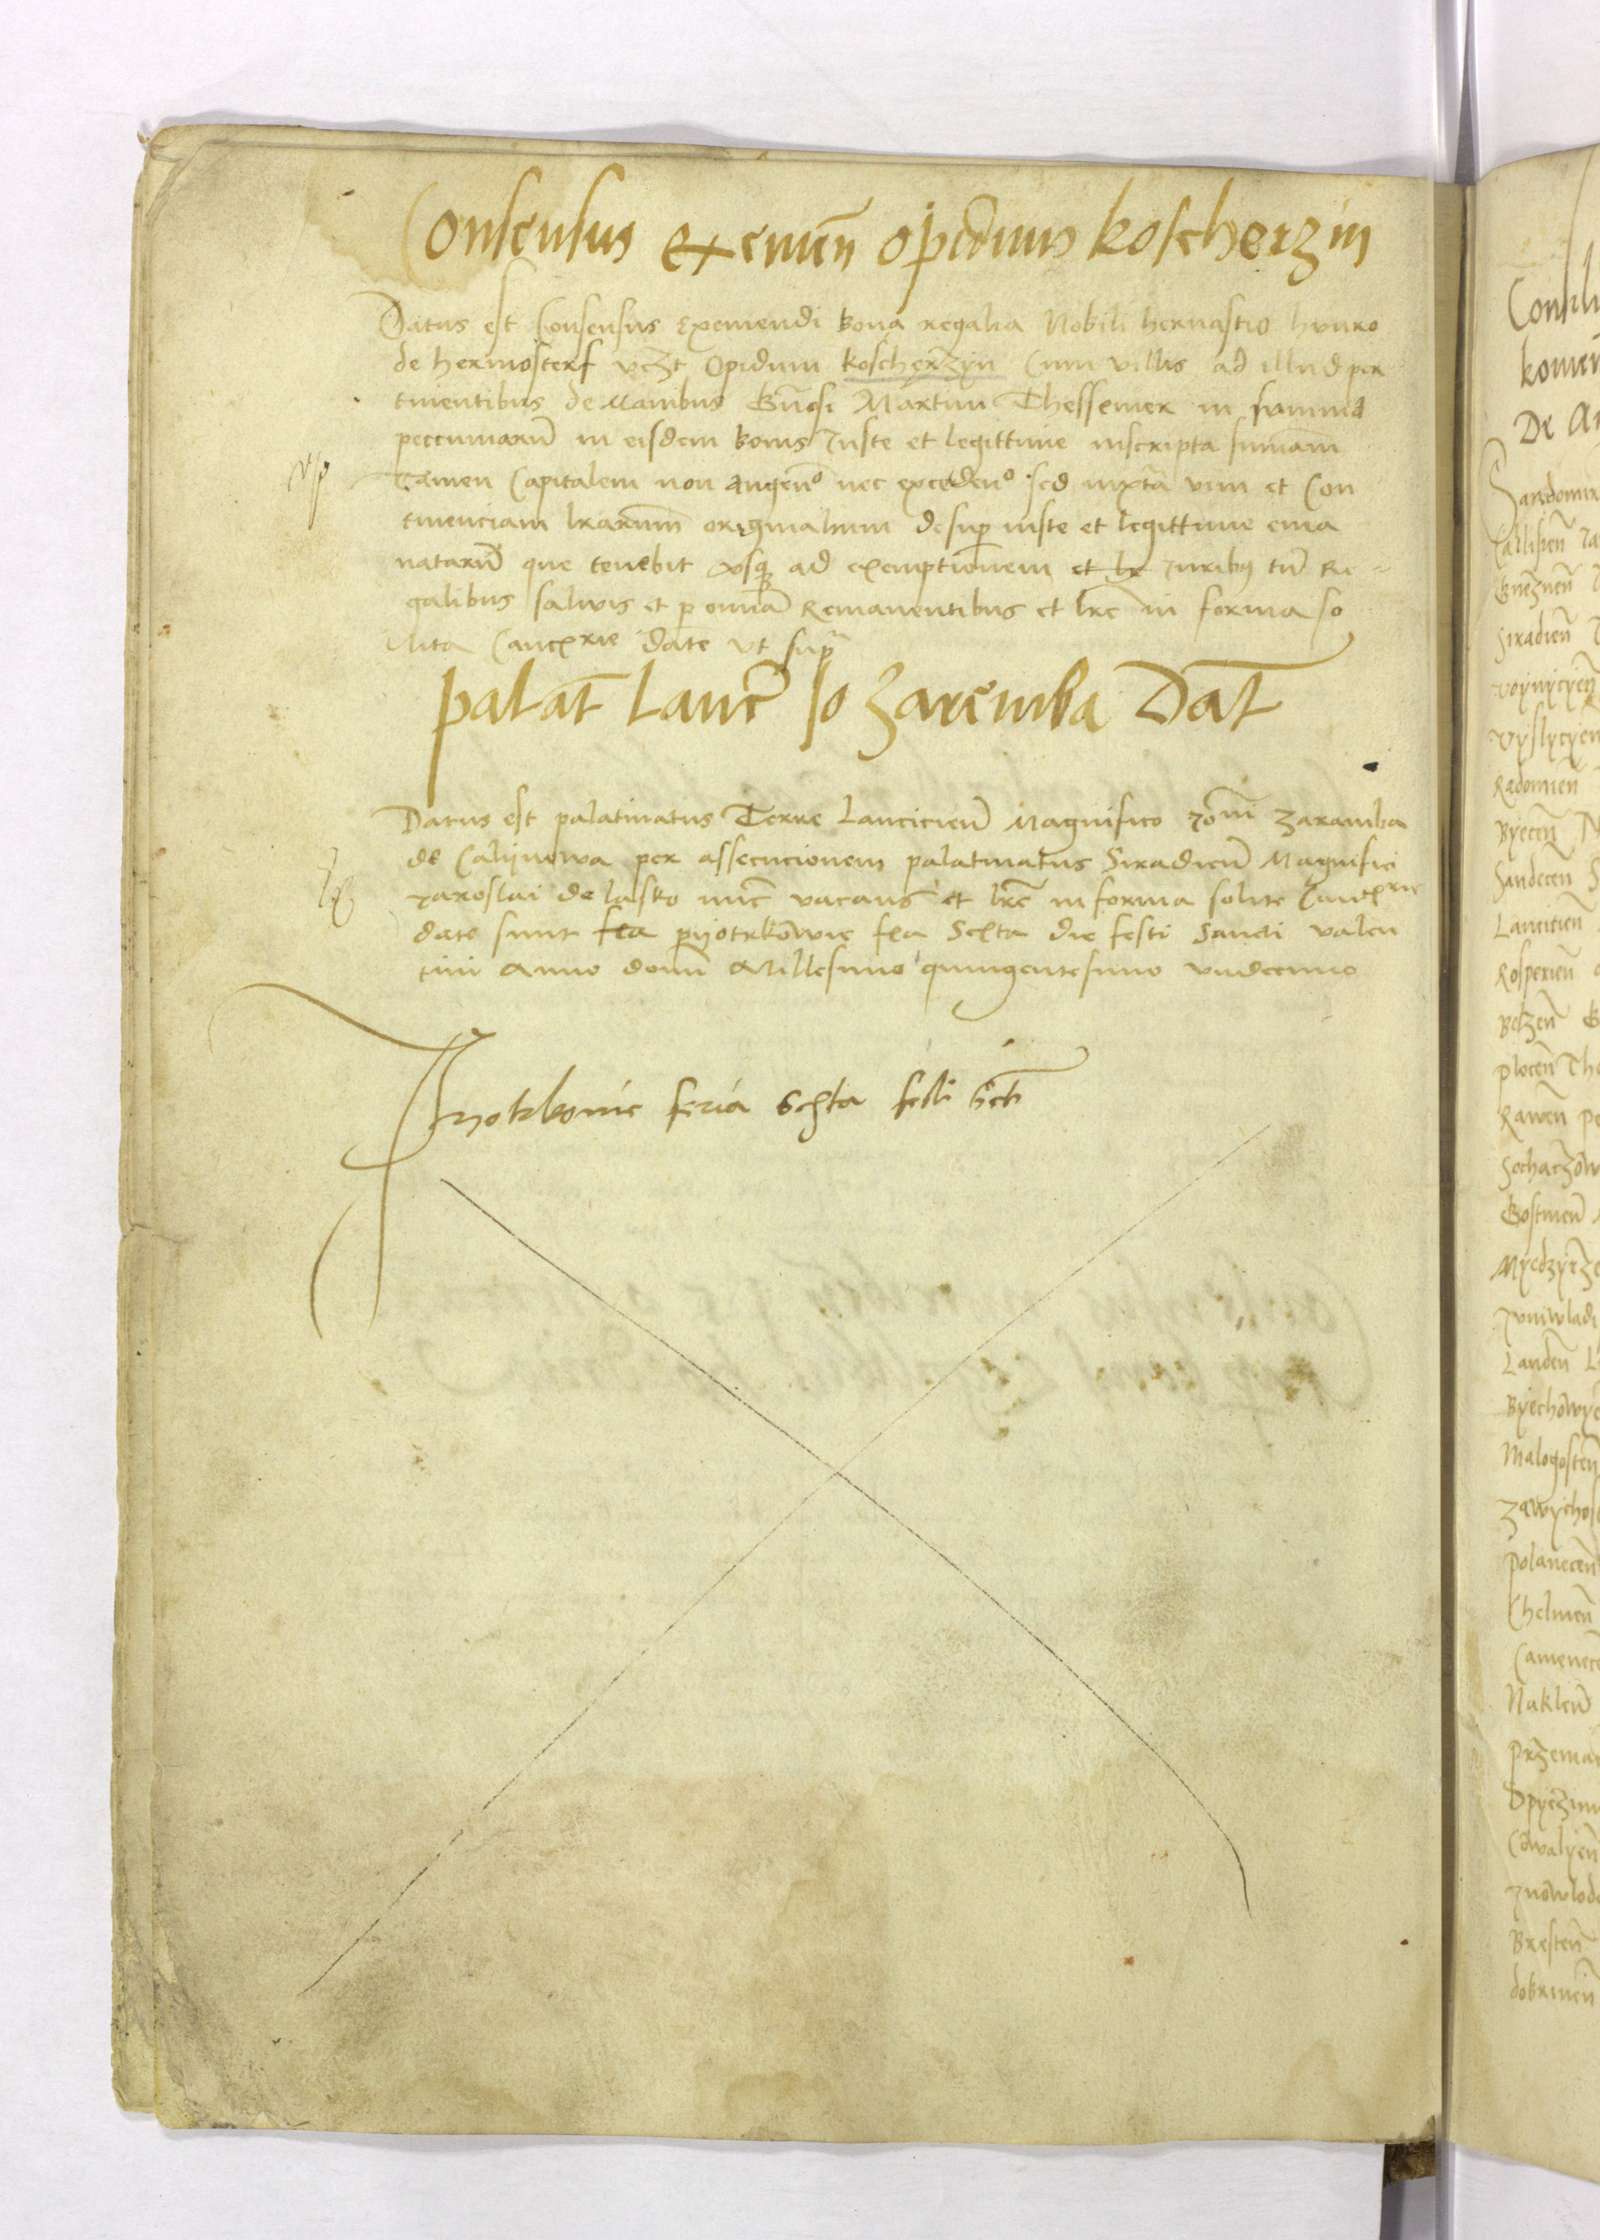 Consensus Exemen̄ opidum koscherzin
Datus est Consensus Exemendi bona regalia Nobili hernastio
de hermosterf vcȝt Opidum koscherzyn Cum villis ad illud per
tinentibus de manibus Gn̄osi Martini Thessemer in summa
peccuniarū in eisdem bonis Juste et legittime inscripta summam
Tamen Capitalem non augenᵒ nec excedenᵒ sed iuxta vim et Con
tinenciam lrarum originalium desuꝑ iuste et legittime ema
natarū que tenebit vsqꝫ ad exemptionem et lr Juribus tn̄ Re
galibus salvis et ꝑ omnia Remanentibus et lrē in forma so
lita Cancʳⁱᵉ date vt supra
palat̄ Lanc̄ Jo Zaremba Dat̄
Datus est palatinatus Terre Lancicien̄ Magnifico Joīn Zaramba
de Calijnowa per assecucionem palatinatus Siradien̄ Magnifici
Jaroslai de lasko nūc vacans et lrē in forma solite Cancʳⁱᵉ
date sunt fea pijotrkowie fea Sexta die festi Sancti valen
tini Anno domī Millesimo quingentesimo vndecimo
Pyotrkovie feria sexta festi scti
Consili
De
Sandomir
Callisien̄
Gneznen̄
Siradien̄
voynycyen̄
vyslycyen
Radomien̄
Byecen̄
Sandecen̄
Lancicien̄
Rosperien̄
Belzen̄
plocen̄
Rawen̄
Sochaczow
Gostinen̄
Myedzyrze
Juniwladi
Landen̄
Byechowye
Malogosten̄
zawychos
polanecen̄
Chelmen̄
Camenece
Naklen̄
przemet
Cowalyen̄
Jnowlodz
Bresten̄
dobrinen̄